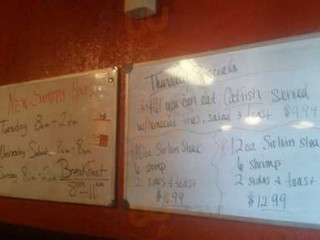 New Summer Hours
Tuesday 8am-2pm
Wednesday 8am-8pm
Sunday 8am-2pm Breakfast
8am-11am
Thursday Specials
All you can eat Catfish Served
w/ fries, salad & toast $9.99
10oz Sirloin Steak
6 shrimp
2 sides + toast
12oz Sirloin Steak
6 shrimp
2 sides & toast
$12.99